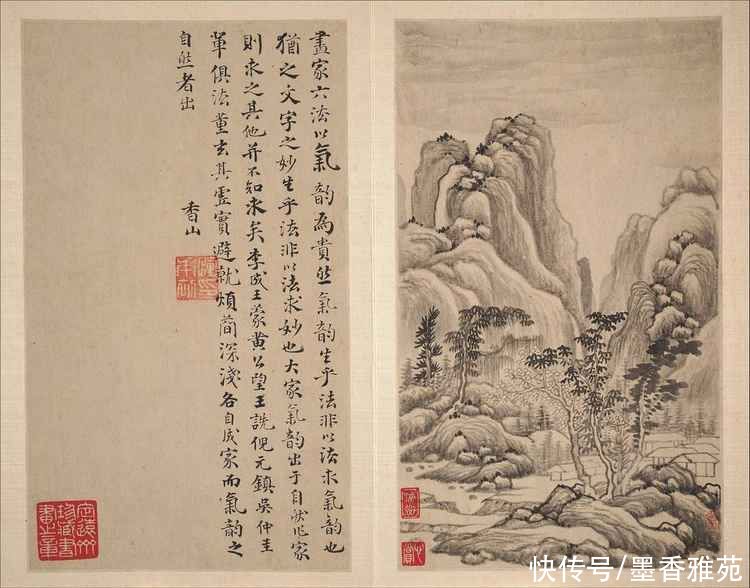 畫家六法以氣韵為貴然氣韵生乎法非以法求氣韵也
猶之文字之妙生乎法非以法求妙也大家氣韵出于自然作家
則求之其他并不知求矣李成王蒙黃公望王詵倪元鎮吳仲圭
軰俱法董玄其虛實避就煩簡深淺各自成家而氣韵之
自然者出
香山
快传号/墨香雅苑